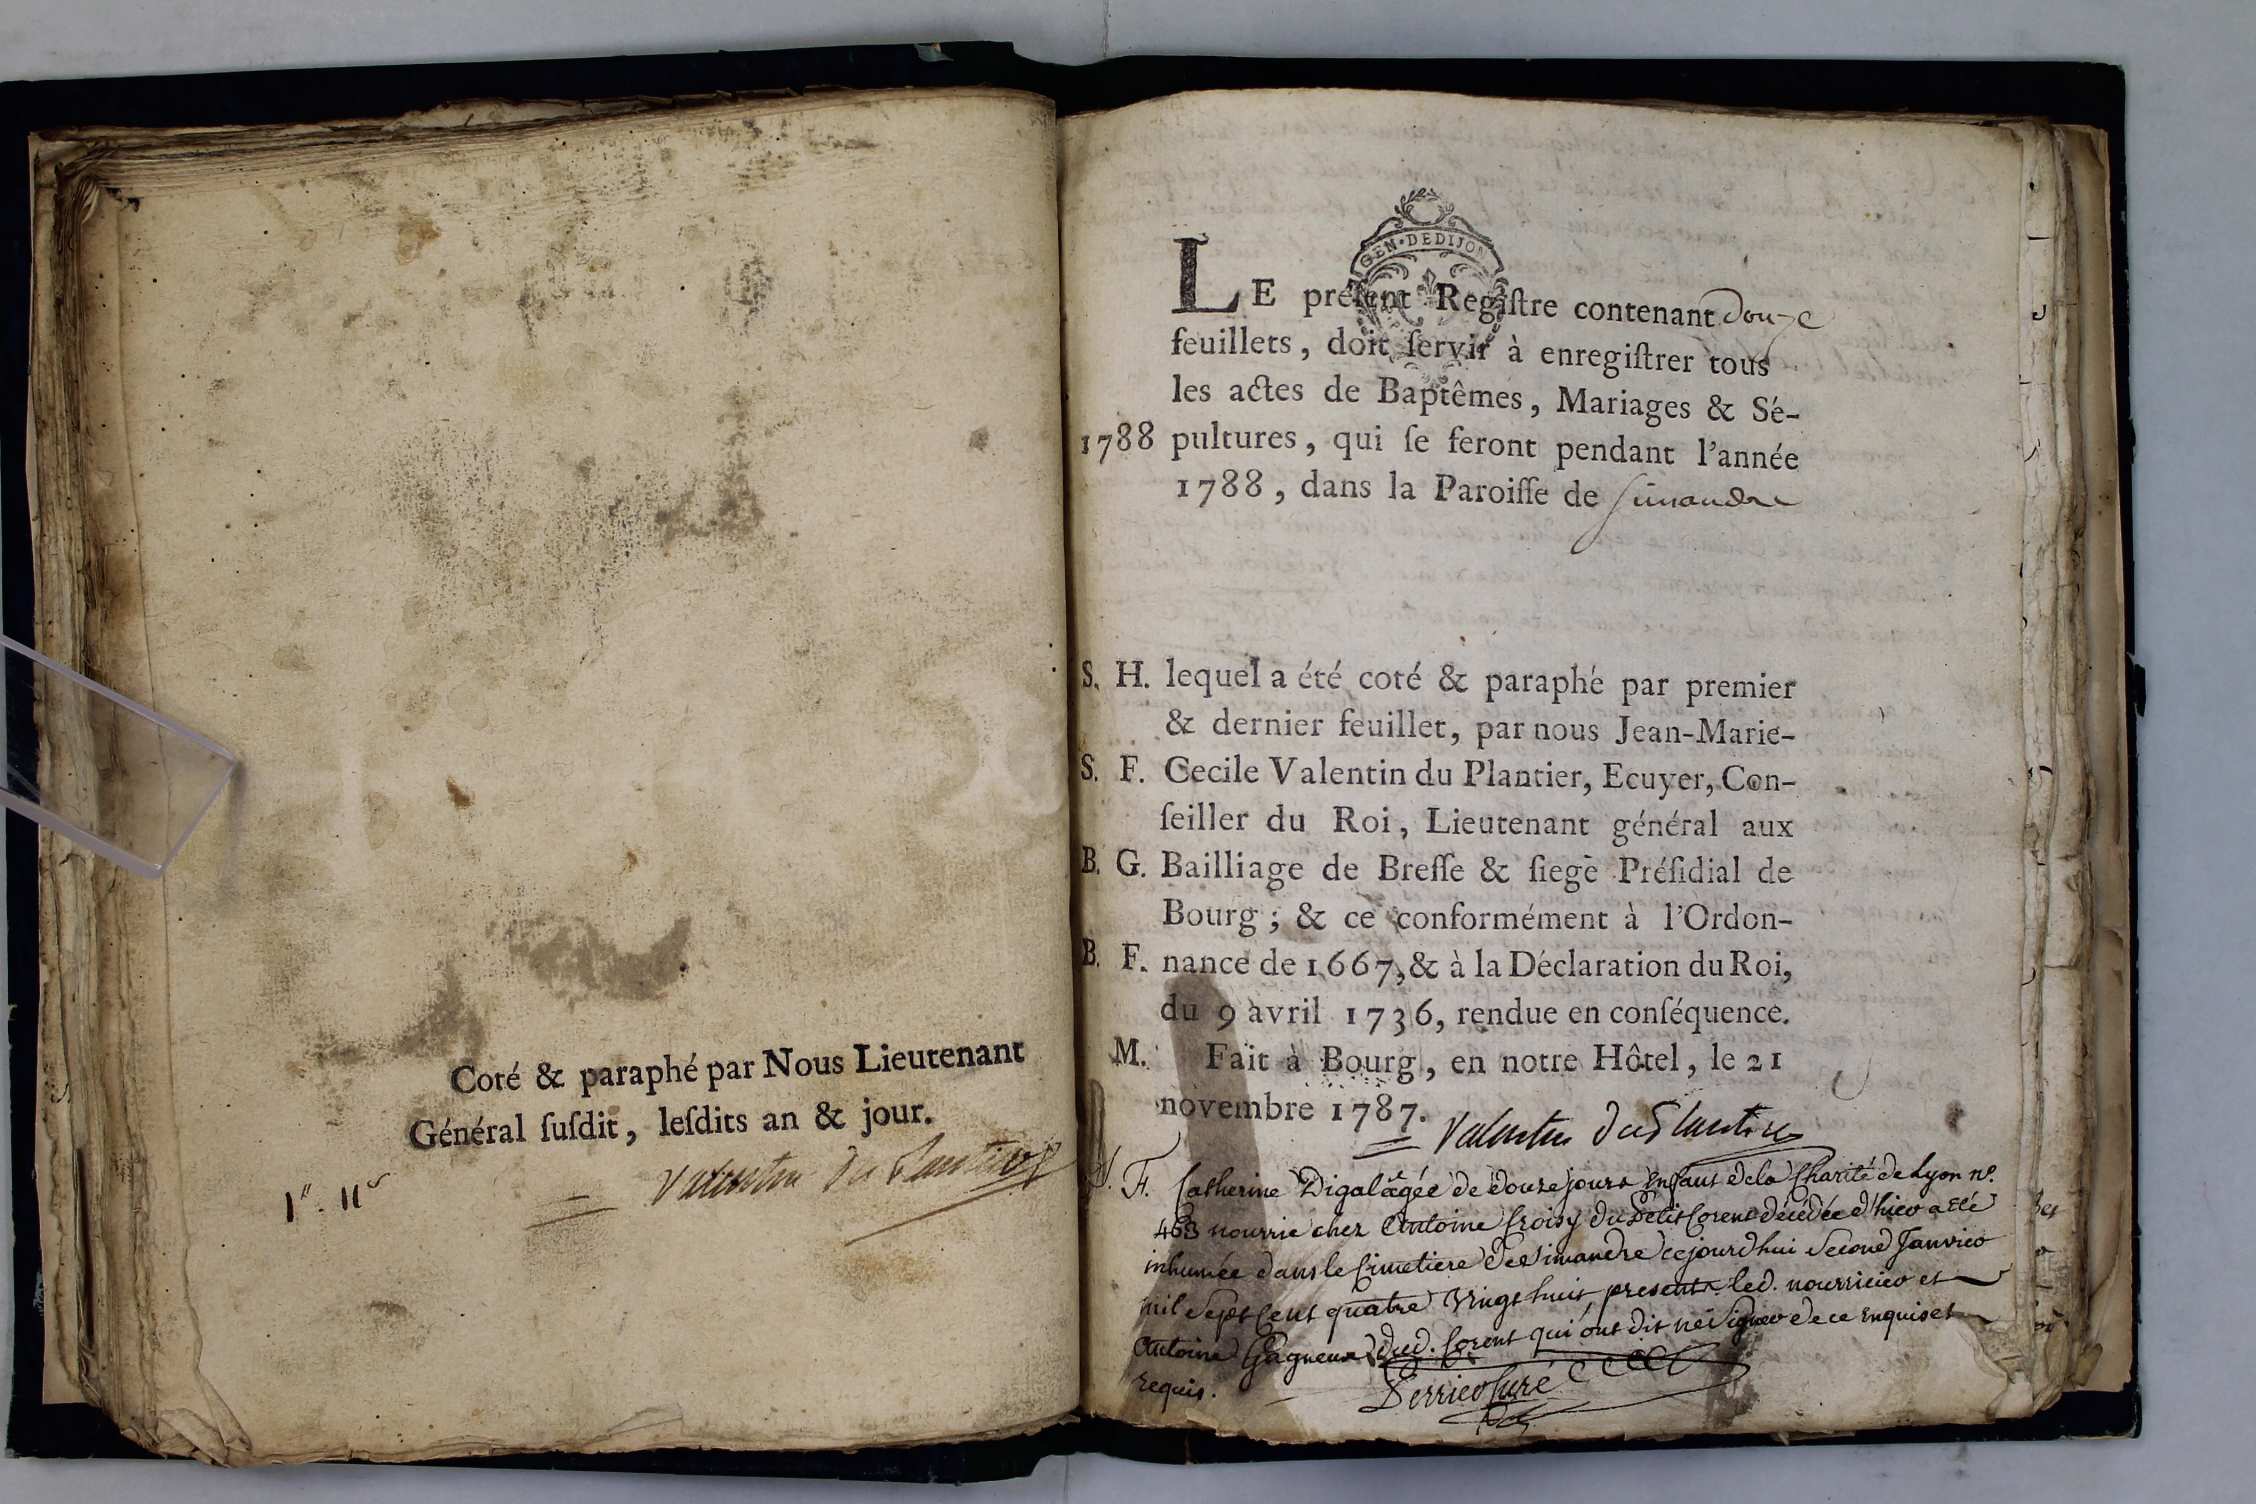 Coté & paraphé par Nous Lieutenant
Général ſuſdit, leſdits an & jour.
Valentin du Plantier
GEN·DE DIJON
LE préſent Regiſtre contenant Douze
feuillets, doit ſervir à enregiſtrer tous
les actes de Baptêmes, Mariages & Sé-
1788 pultures, qui ſe feront pendant l'année
1788, dans la Paroiſſe de Simandre
S. H. lequel a été coté & paraphé par premier
& dernier feuillet, par nous Jean-Marie-
S. F. Cecile Valentin du Plantier, Ecuyer, Con-
ſeiller du Roi, Lieutenant général aux
B. G. Bailliage de Breſſe & ſiege Préſidial de
Bourg ; & ce conformément à l'Ordon-
B. F. nance de 1667, & à la Déclaration du Roi,
du 9 avril 1736, rendue en conſéquence.
M. Fait à Bourg, en notre Hôtel, le 21
novembre 1787.
Valentin du Plantier
F. Catherine Digala agée de douze jours Enfant de la Charité de Lyon n°.
463 nourrie chez Antoine Croisy du Petit Corent décédée d'hier a eté
inhumée dans le Cimetiere de Simandre cejourdhui Second Janvier
mil Sept Cent quatre Vingt huit presents led. nourricier et
Antoine Gagneux dud. Corent qui ont dit ne Signer de ce Enquis et
requis.
Perrier Curé